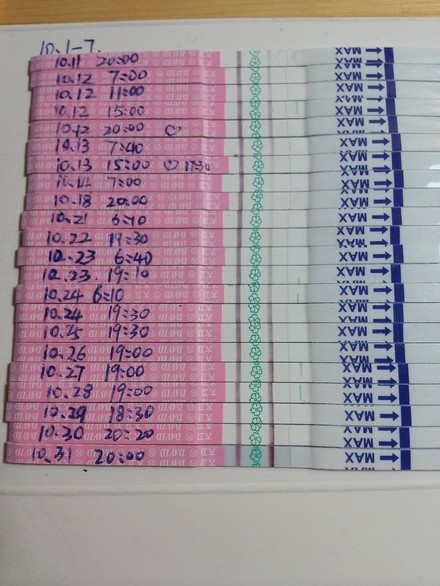 10.1-7.
10.11 20:00 MAX
10.12 7:00 MAX
10.12 11:00 MAX
10.12 15:00 MAX
10.12 20:00 ♡ MAX
10.13 7:40 MAX
10.13 15:00 ♡ 1730 MAX
7:00 MAX
10.18 20:00 MAX
10.21 6:10 MAX
10.22 19:30 MAX
10.23 6:40 MAX
10.23 19:10 MAX
10.24 6:10 MAX
10.24 19:30 MAX
10.25 19:30 MAX
10.26 19:00 MAX
10.27 19:00 MAX
10.28 19:00 MAX
10.29 18:30 MAX
10.30 20:20 MAX
10.31 20:00 MAX